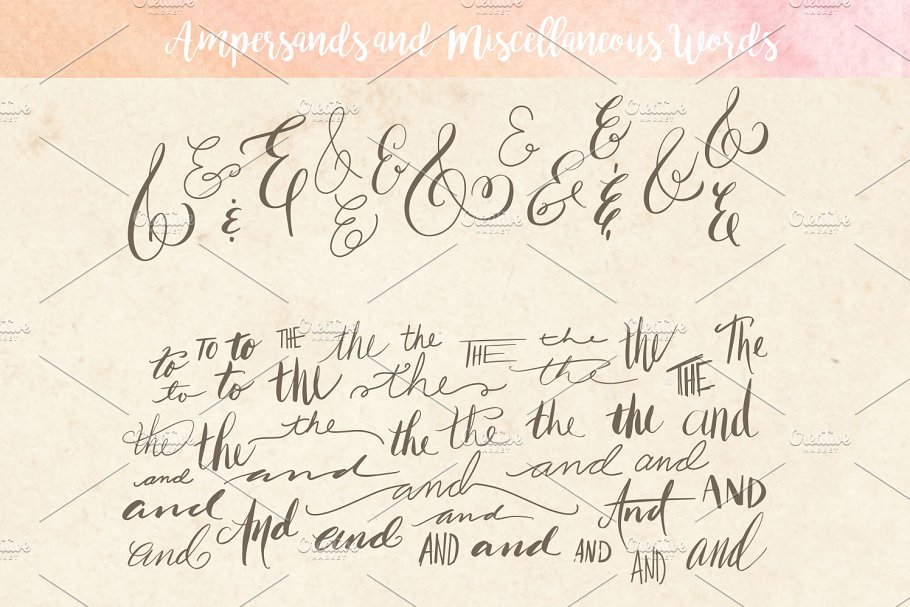 Ampersands and Miscellaneous Words
& & & & & & & & & & & & & & &
to TO to THE the the THE the the THE The
to to the s the s the
the the the the the the the the and
and and and and and
and And and and And AND
and AND and AND AND and
Creative MARKET